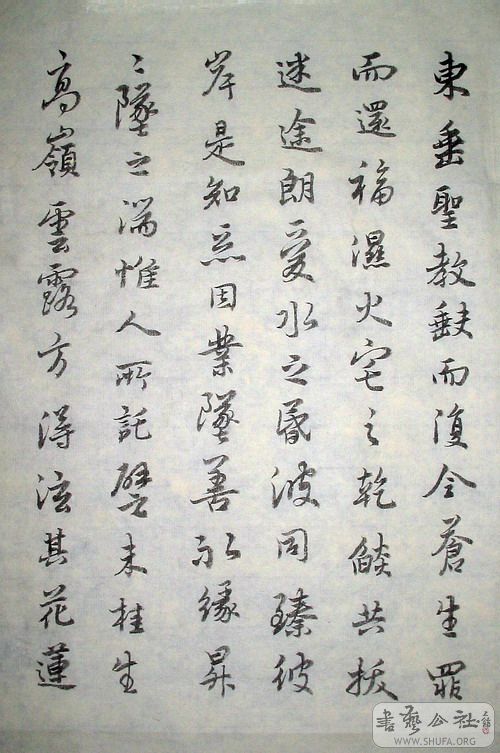 東垂聖教缺而復全蒼生罪
而還福濕火宅之乾燄共拔
迷途朗愛水之昏波同臻彼
岸是知惡因業墜善以緣昇
〻墜之端惟人所託譬夫桂生
高嶺雲露方得泫其花蓮
書藝公社
WWW.SHUFA.ORG